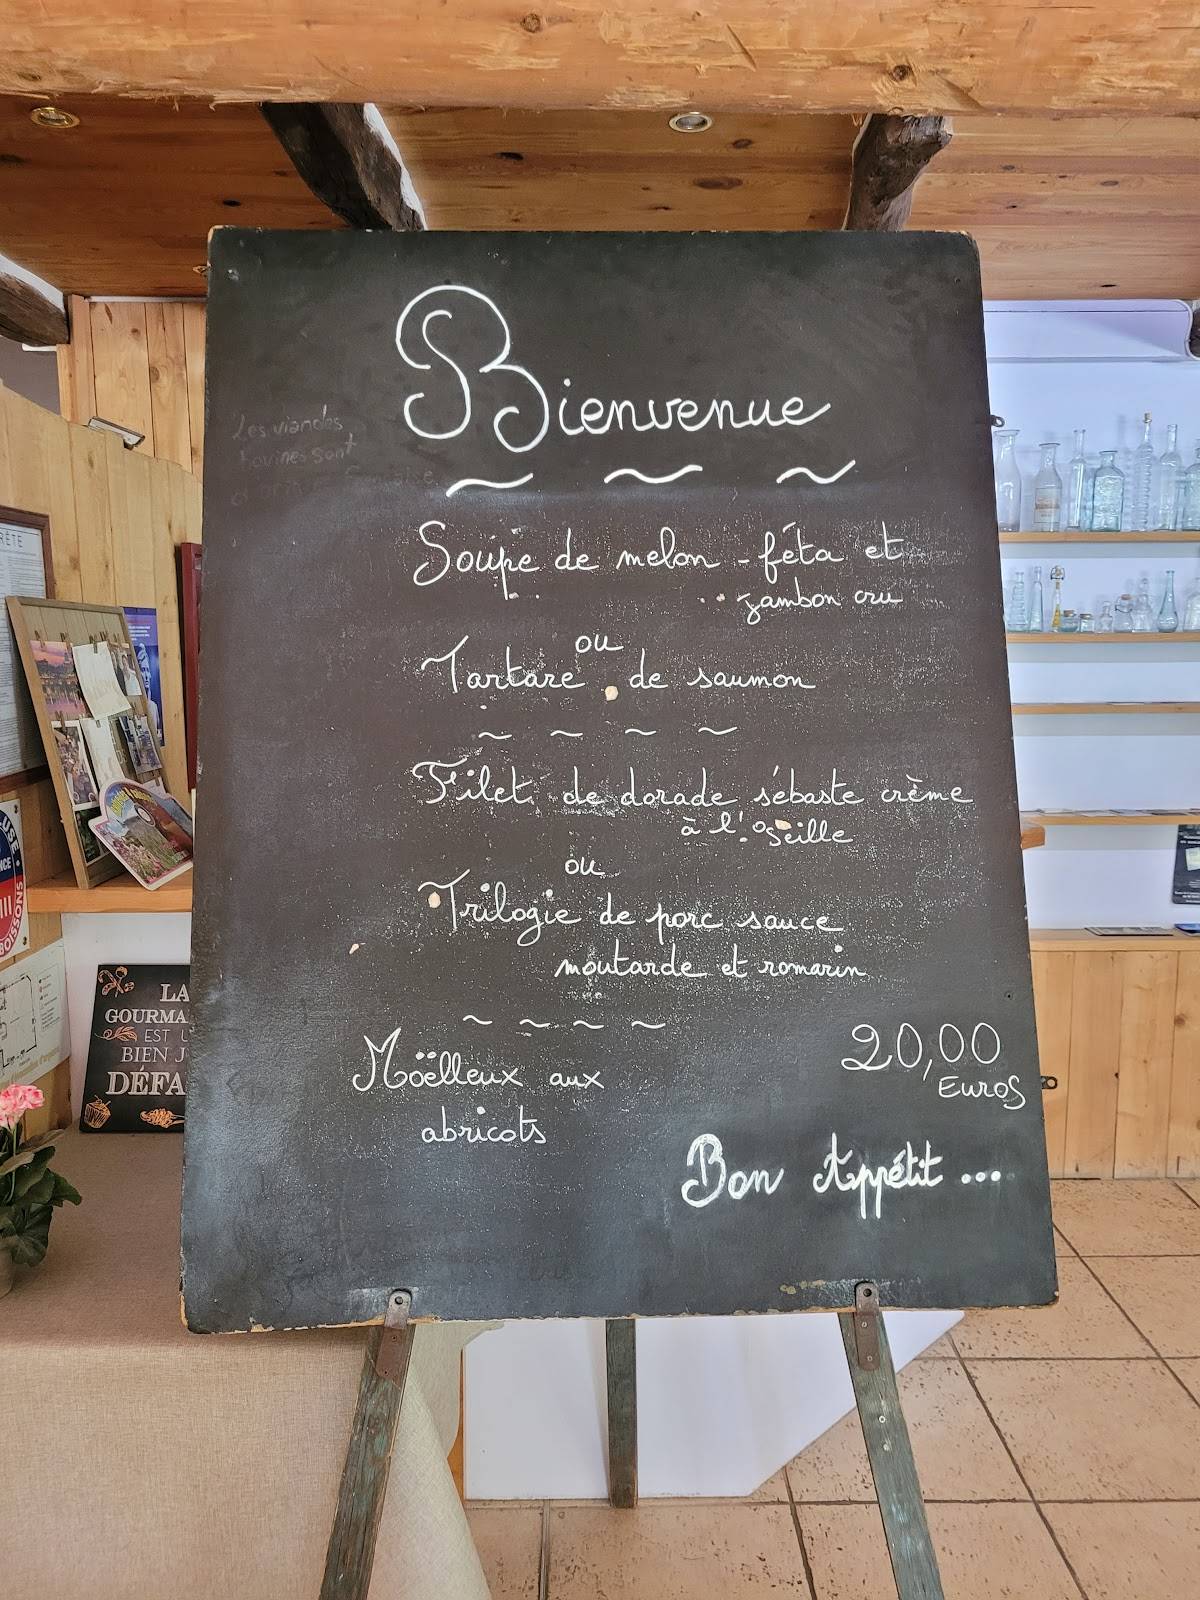 Bienvenue
Les viandes
bovines sont
Soupe de melon - féta et
jambon cru
ou
Tartare de saumon
Filet de dorade sébaste crème
à l'oseille
ou
Trilogie de porc sauce
moutarde et romarin
Moëlleux aux
abricots
20,00
Euros
Bon Appétit ...
LA
GOURMA
EST U
BIEN J
DÉFA
RÊTE
BOISSONS